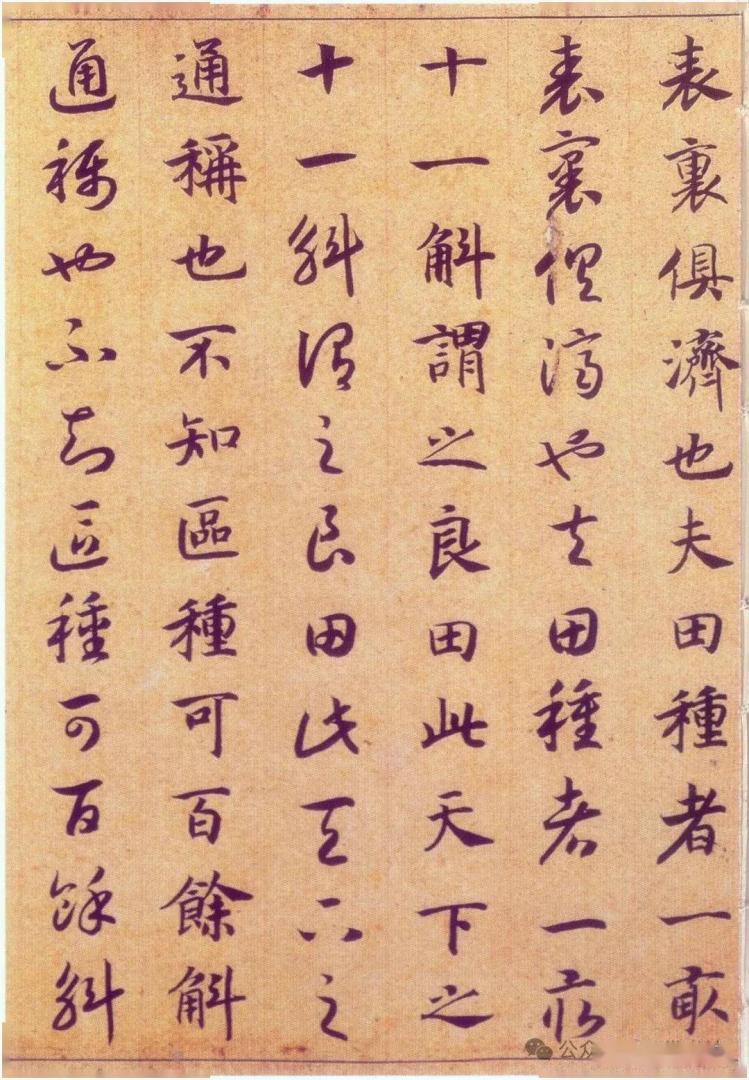 表裏俱濟也夫田種者一畝
表裏俱濟也夫田種者一畝
十一斛謂之良田此天下之
十一斛謂之良田此天下之
通稱也不知區種可百餘斛
通稱也不知區種可百餘斛
公众